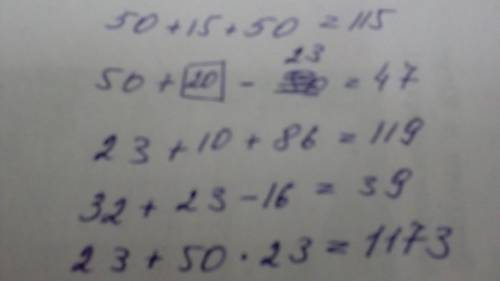 50+15+50=115
50+20-23=47
23+10+86=119
32+23-16=39
23+50·23=1173